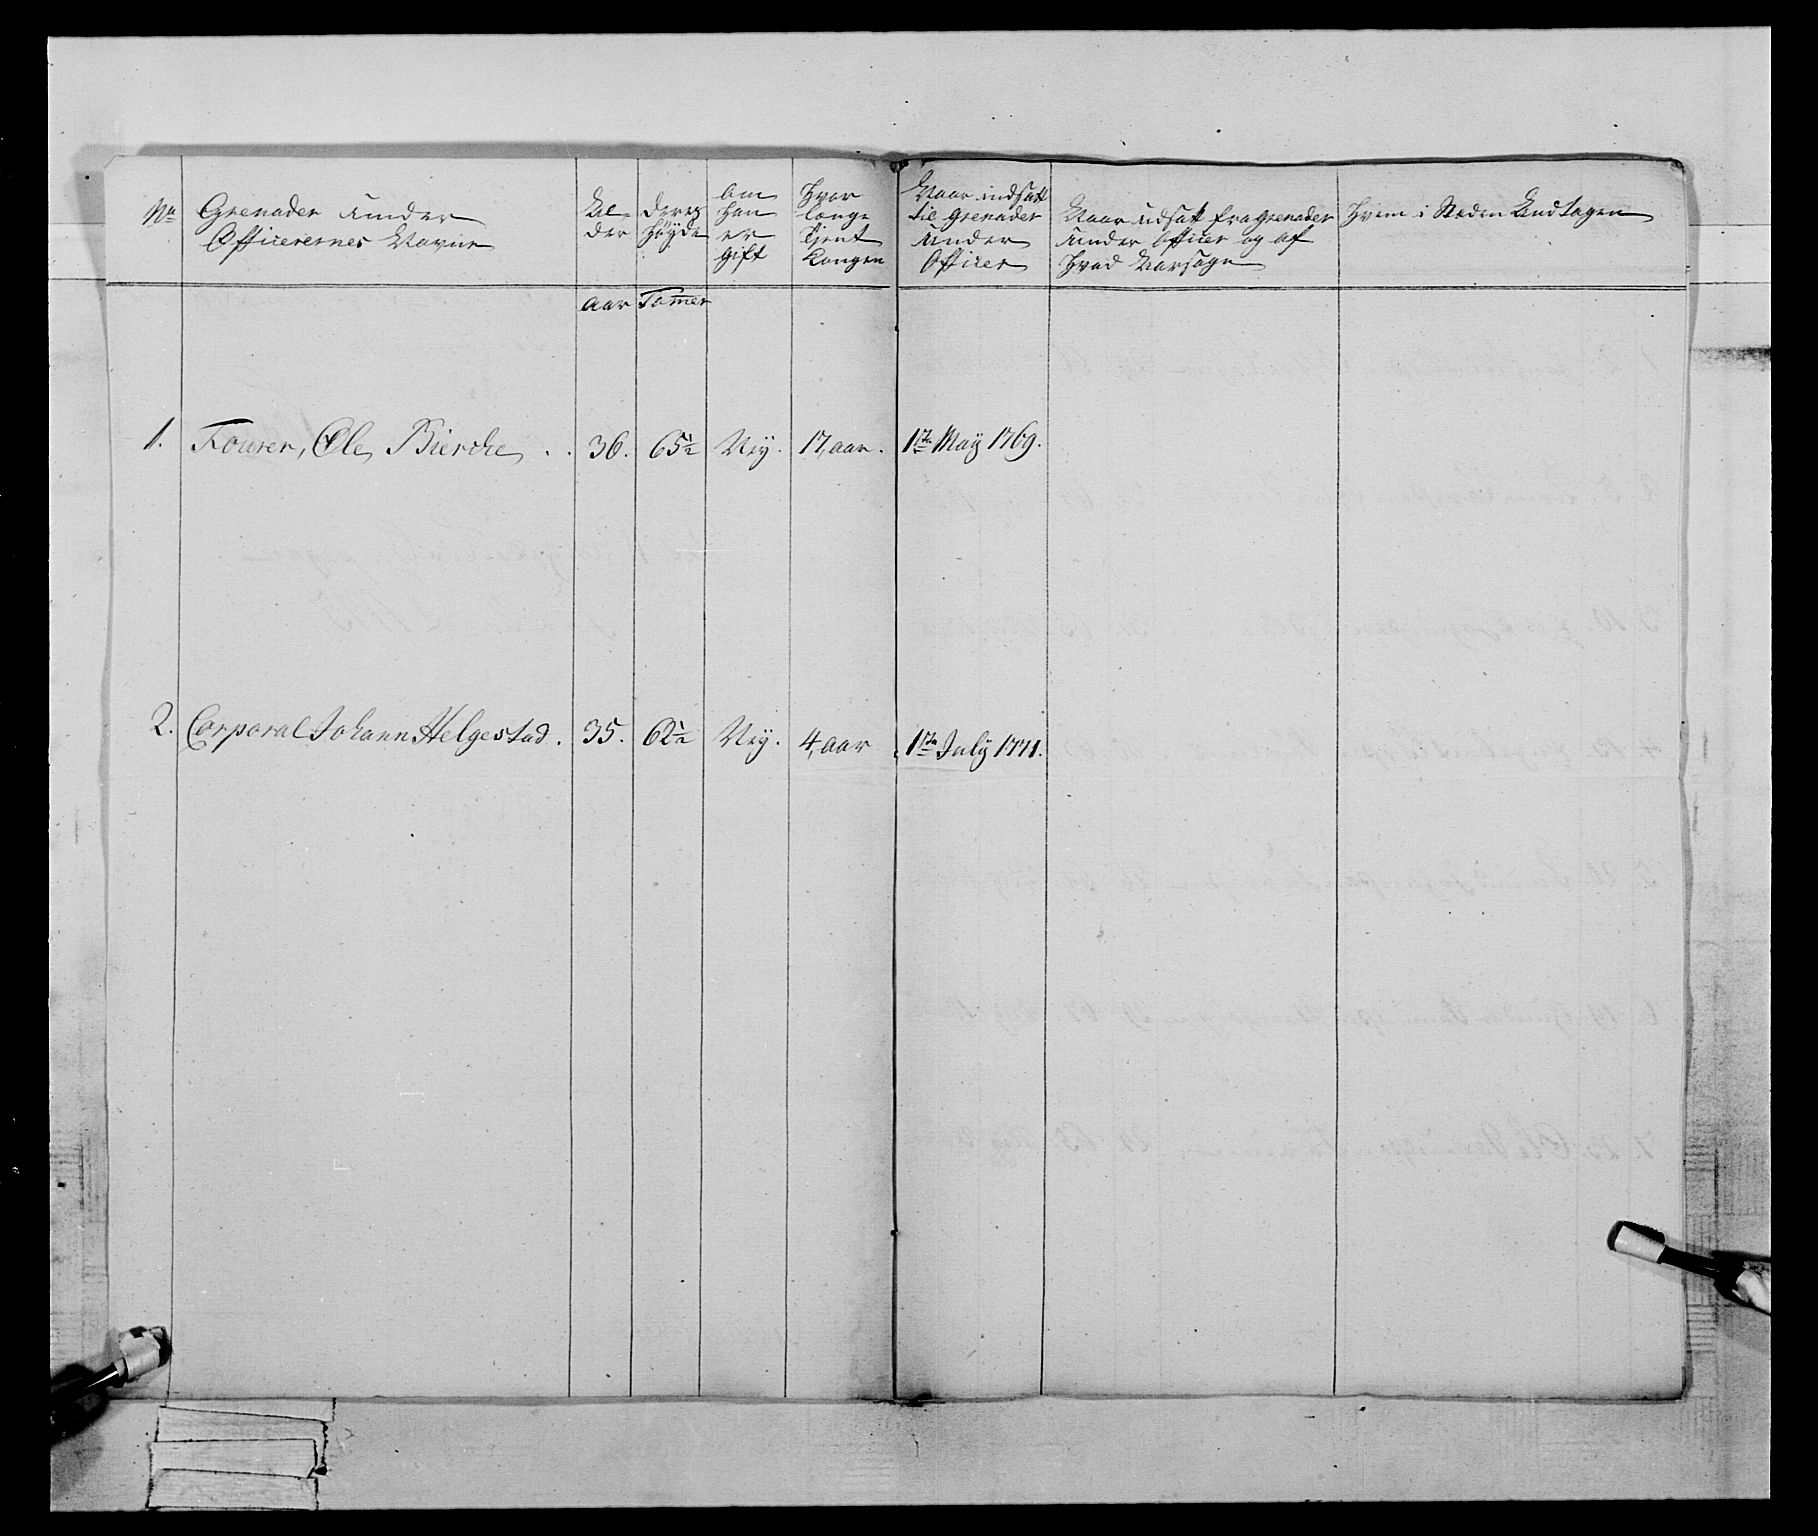 No
Grenader under
Officerernes Navne
Al-
der
deres
höyde
om
han
er
gift
Hvor
længe
Tjent
Kongen
Naar indsatt
til Grenader
under
Officer
Naar udsatt fra Grenader
under Officer og af
Hvad Aarsage
Hvem i Stæden Andtagen
aar
Tomer
1. Fourer, Ole Bierche . . 36. 65½ Neÿ. 17, aar. 1te Maÿ 1769.
2. Corporal Johann Helgestad. 35. 62½ Neÿ. 4, aar 1te Julÿ 1771.